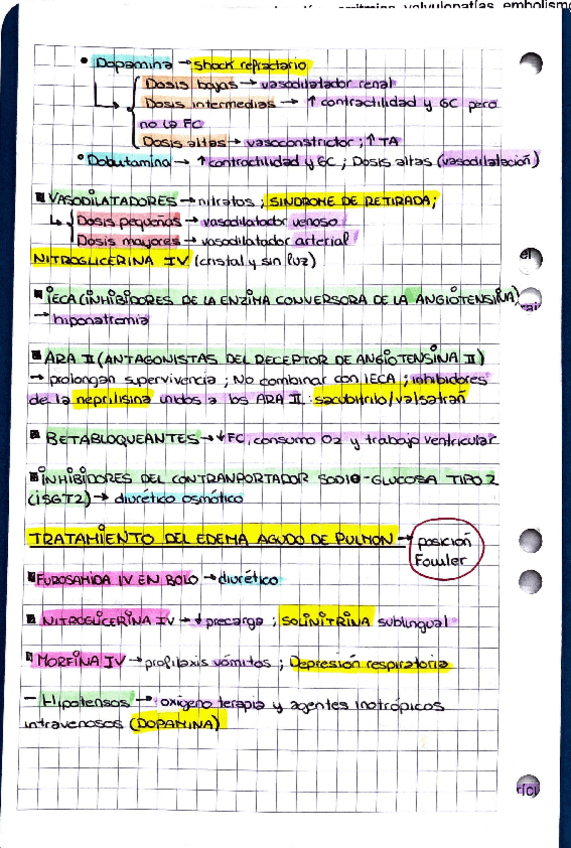 arritmias, valvulopatías, embolismo
• Dopamina → shock refractario
Dosis bajas → vasodilatador renal
Dosis intermedias → ↑ contractilidad y GC pero
no la FC
Dosis altas → vasoconstrictor ; ↑ TA
• Dobutamina → ↑ contractilidad y GC ; Dosis altas (vasodilatación)
VASODILATADORES → nitratos ; SINDROME DE RETIRADA;
Dosis pequeñas → vasodilatador venoso
Dosis mayores → vasodilatador arterial
NITROGLICERINA IV (cristal y sin luz)
el
IECA (INHIBIDORES DE LA ENZIMA CONVERSORA DE LA ANGIOTENSINA)
→ hiponatremia
ARA II (ANTAGONISTAS DEL RECEPTOR DE ANGIOTENSINA II)
→ prolongan supervivencia ; No combinar con IECA ; inhibidores
de la neprilisina unidos a los ARA II : sacubitrilo/valsatrán
BETABLOQUEANTES → ↓ FC, consumo O2 y trabajo ventricular
INHIBIDORES DEL CONTRANPORTADOR SODIO-GLUCOSA TIPO 2
(iSGT2) → diurético osmótico
TRATAMIENTO DEL EDEMA AGUDO DE PULMON → posición
Fowler
FUROSAMIDA IV EN BOLO → diurético
NITROGLICERINA IV → ↓ precarga ; SOLINITRINA sublingual
MORFINA IV → profilaxis vómitos ; Depresión respiratoria
- Hipotensos → oxigeno terapia y agentes inotrópicos
intravenosos (DOPAMINA)